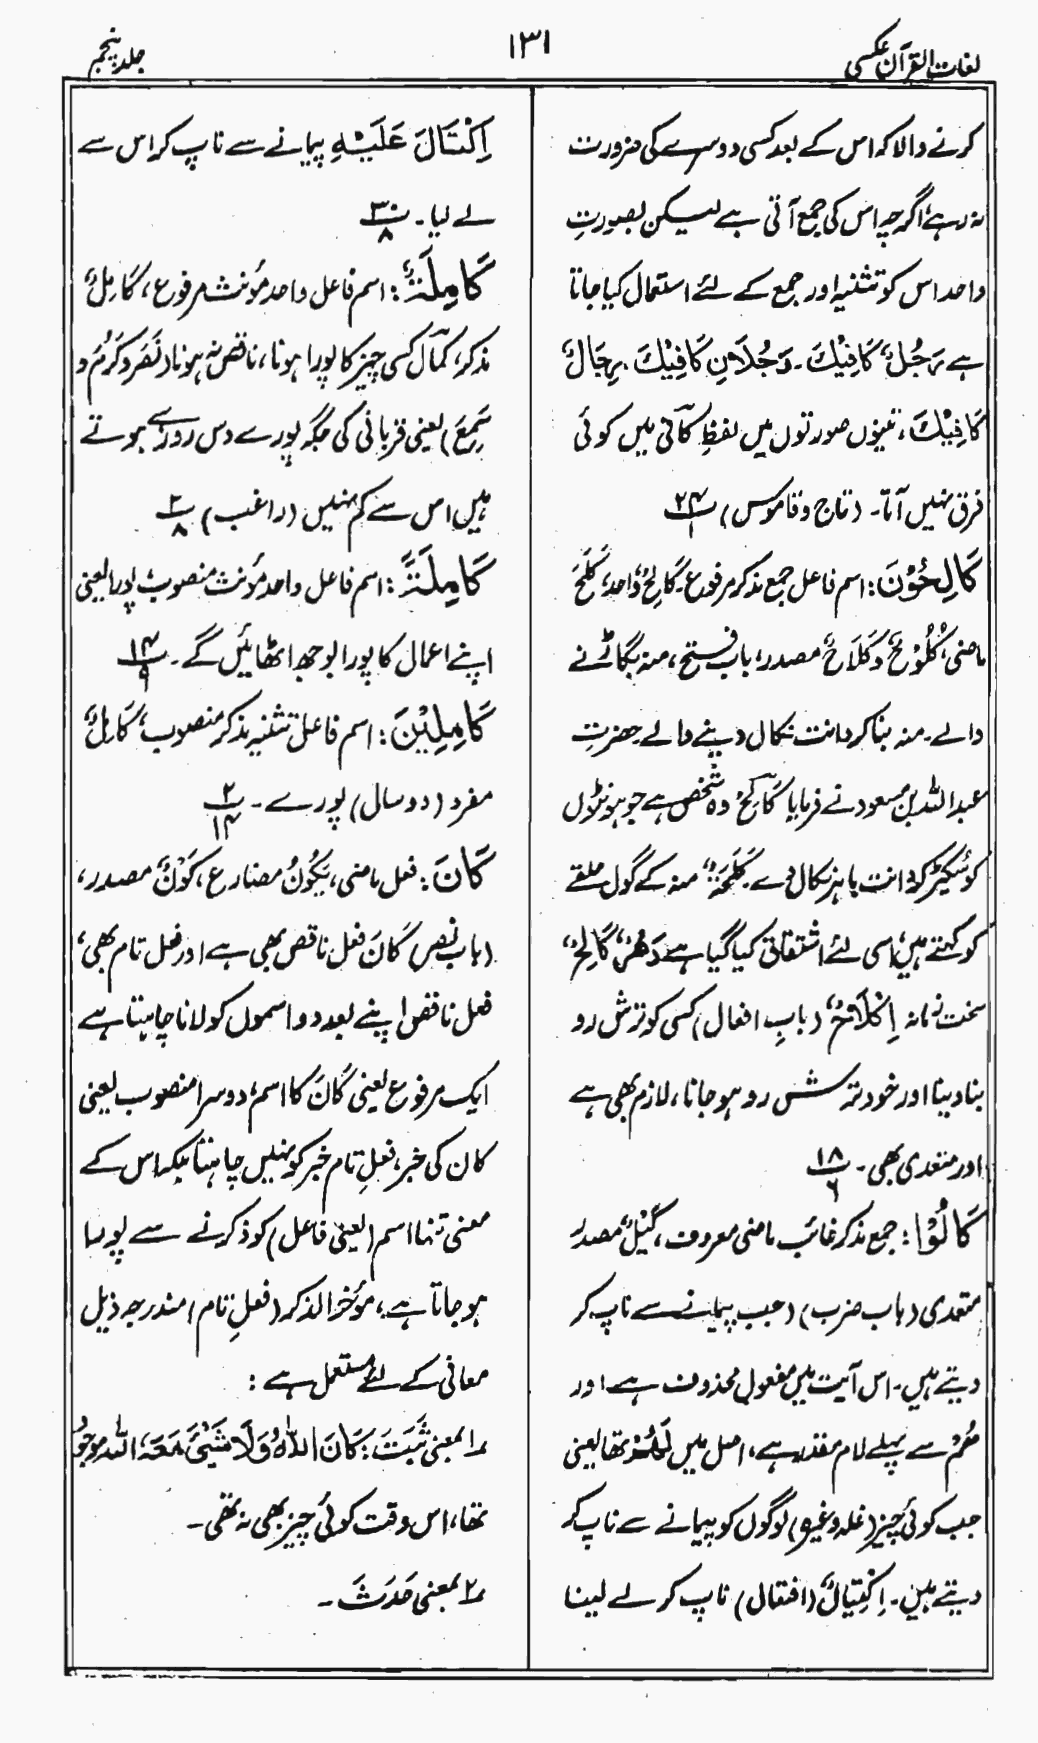 لغات القرآن عکسی
۱۳۱
جلد پنجم
کرنے والا کہ اس کے بعد کسی دوسرے کی ضرورت
نہ رہے، اگرچہ اس کی جمع آتی ہے لیکن بصورتِ
واحد اس کو تثنیہ اور جمع کے لئے استعمال کیا جاتا
ہے رَجُلٌ کَافِیْکَ۔ رَجُلَانِ کَافِیْکَ۔ رِجَالٌ
کَافِیْکَ، تینوں صورتوں میں لفظِ کافی میں کوئی
فرق نہیں آتا۔ (تاج و قاموس) ۲۴/۱
کَالِحُوْنَ: اسم فاعل جمع مذکر مرفوع۔ کَالِحٌ واحد، کَلَحَ
ماضی، کُلُوْحٌ و کُلَاحٌ مصدر، باب فتح، منہ بگاڑنے
والے۔ منہ بنا کر دانت نکال دینے والے۔ حضرت
عبداللہ بن مسعود نے فرمایا کَالِحٌ وہ شخص ہے جو ہونٹوں
کو سکیڑ کر دانت باہر نکال دے۔ کَلَحَۃٌ منہ کے گول حلقے
کو کہتے ہیں، اسی لئے اشتقاق کیا گیا ہے دَھْرٌ کَالِحٌ
سخت زمانہ اِکْلَاحٌ (بابِ افعال) کسی کو ترش رو
بنا دینا اور خود ترش رو ہو جانا، لازم بھی ہے
اور متعدی بھی۔ ۱۸/۶
کَالُوْا: جمع مذکر غائب ماضی معروف، کَیْلٌ مصدر
متعدی (باب ضرب) (جب پیمانے سے ناپ کر
دیتے ہیں۔ اس آیت میں مفعول محذوف ہے اور
ھُمْ سے پہلے لام مقدر ہے، اصل میں لَھُمْ تھا یعنی
جب کوئی چیز (غلہ وغیرہ) لوگوں کو پیمانے سے ناپ کر
دیتے ہیں۔ اِکْتِیَالٌ (افتعال) ناپ کر لے لینا
اِکْتَالَ عَلَیْہِ پیمانے سے ناپ کر اس سے
لے لیا۔ ۳۰/۸
کَامِلَۃٌ: اسم فاعل واحد مؤنث مرفوع، کَامِلٌ
مذکر، کمال کسی چیز کا پورا ہونا، ناقص نہ ہونا (نَصَرَ و کَرُمَ و
سَمِعَ) یعنی قربانی کی جگہ پورے دس روزے ہوتے
ہیں اس سے کم نہیں (راغب) ۲/۸
کَامِلَۃً: اسم فاعل واحد مؤنث منصوب، پورا یعنی
اپنے اعمال کا پورا بوجھ اٹھائیں گے۔ ۱۴/۹
کَامِلِیْنَ: اسم فاعل تثنیہ مذکر منصوب، کَامِلٌ
مفرد (دو سال) پورے۔ ۲/۱۴
کَانَ: فعل ماضی، یَکُوْنُ مضارع، کَوْنٌ مصدر،
(باب نصر) کَانَ فعل ناقص بھی ہے اور فعل تام بھی،
فعل ناقص اپنے بعد دو اسموں کو لانا چاہتا ہے
ایک مرفوع یعنی کَانَ کا اسم، دوسرا منصوب یعنی
کان کی خبر، فعلِ تام خبر کو نہیں چاہتا بلکہ اس کے
معنی تنہا اسم (یعنی فاعل) کو ذکر کرنے سے پورا
ہو جاتا ہے، مؤخر الذکر (فعلِ تام) مندرجہ ذیل
معانی کے لئے مستعمل ہے:
۱؎ بمعنی ثَبَتَ: کَانَ اللّٰہُ وَلَا شَیْئَ مَعَہٗ، اللہ موجود
تھا، اس وقت کوئی چیز بھی نہ تھی۔
۲؎ بمعنی حَدَثَ۔